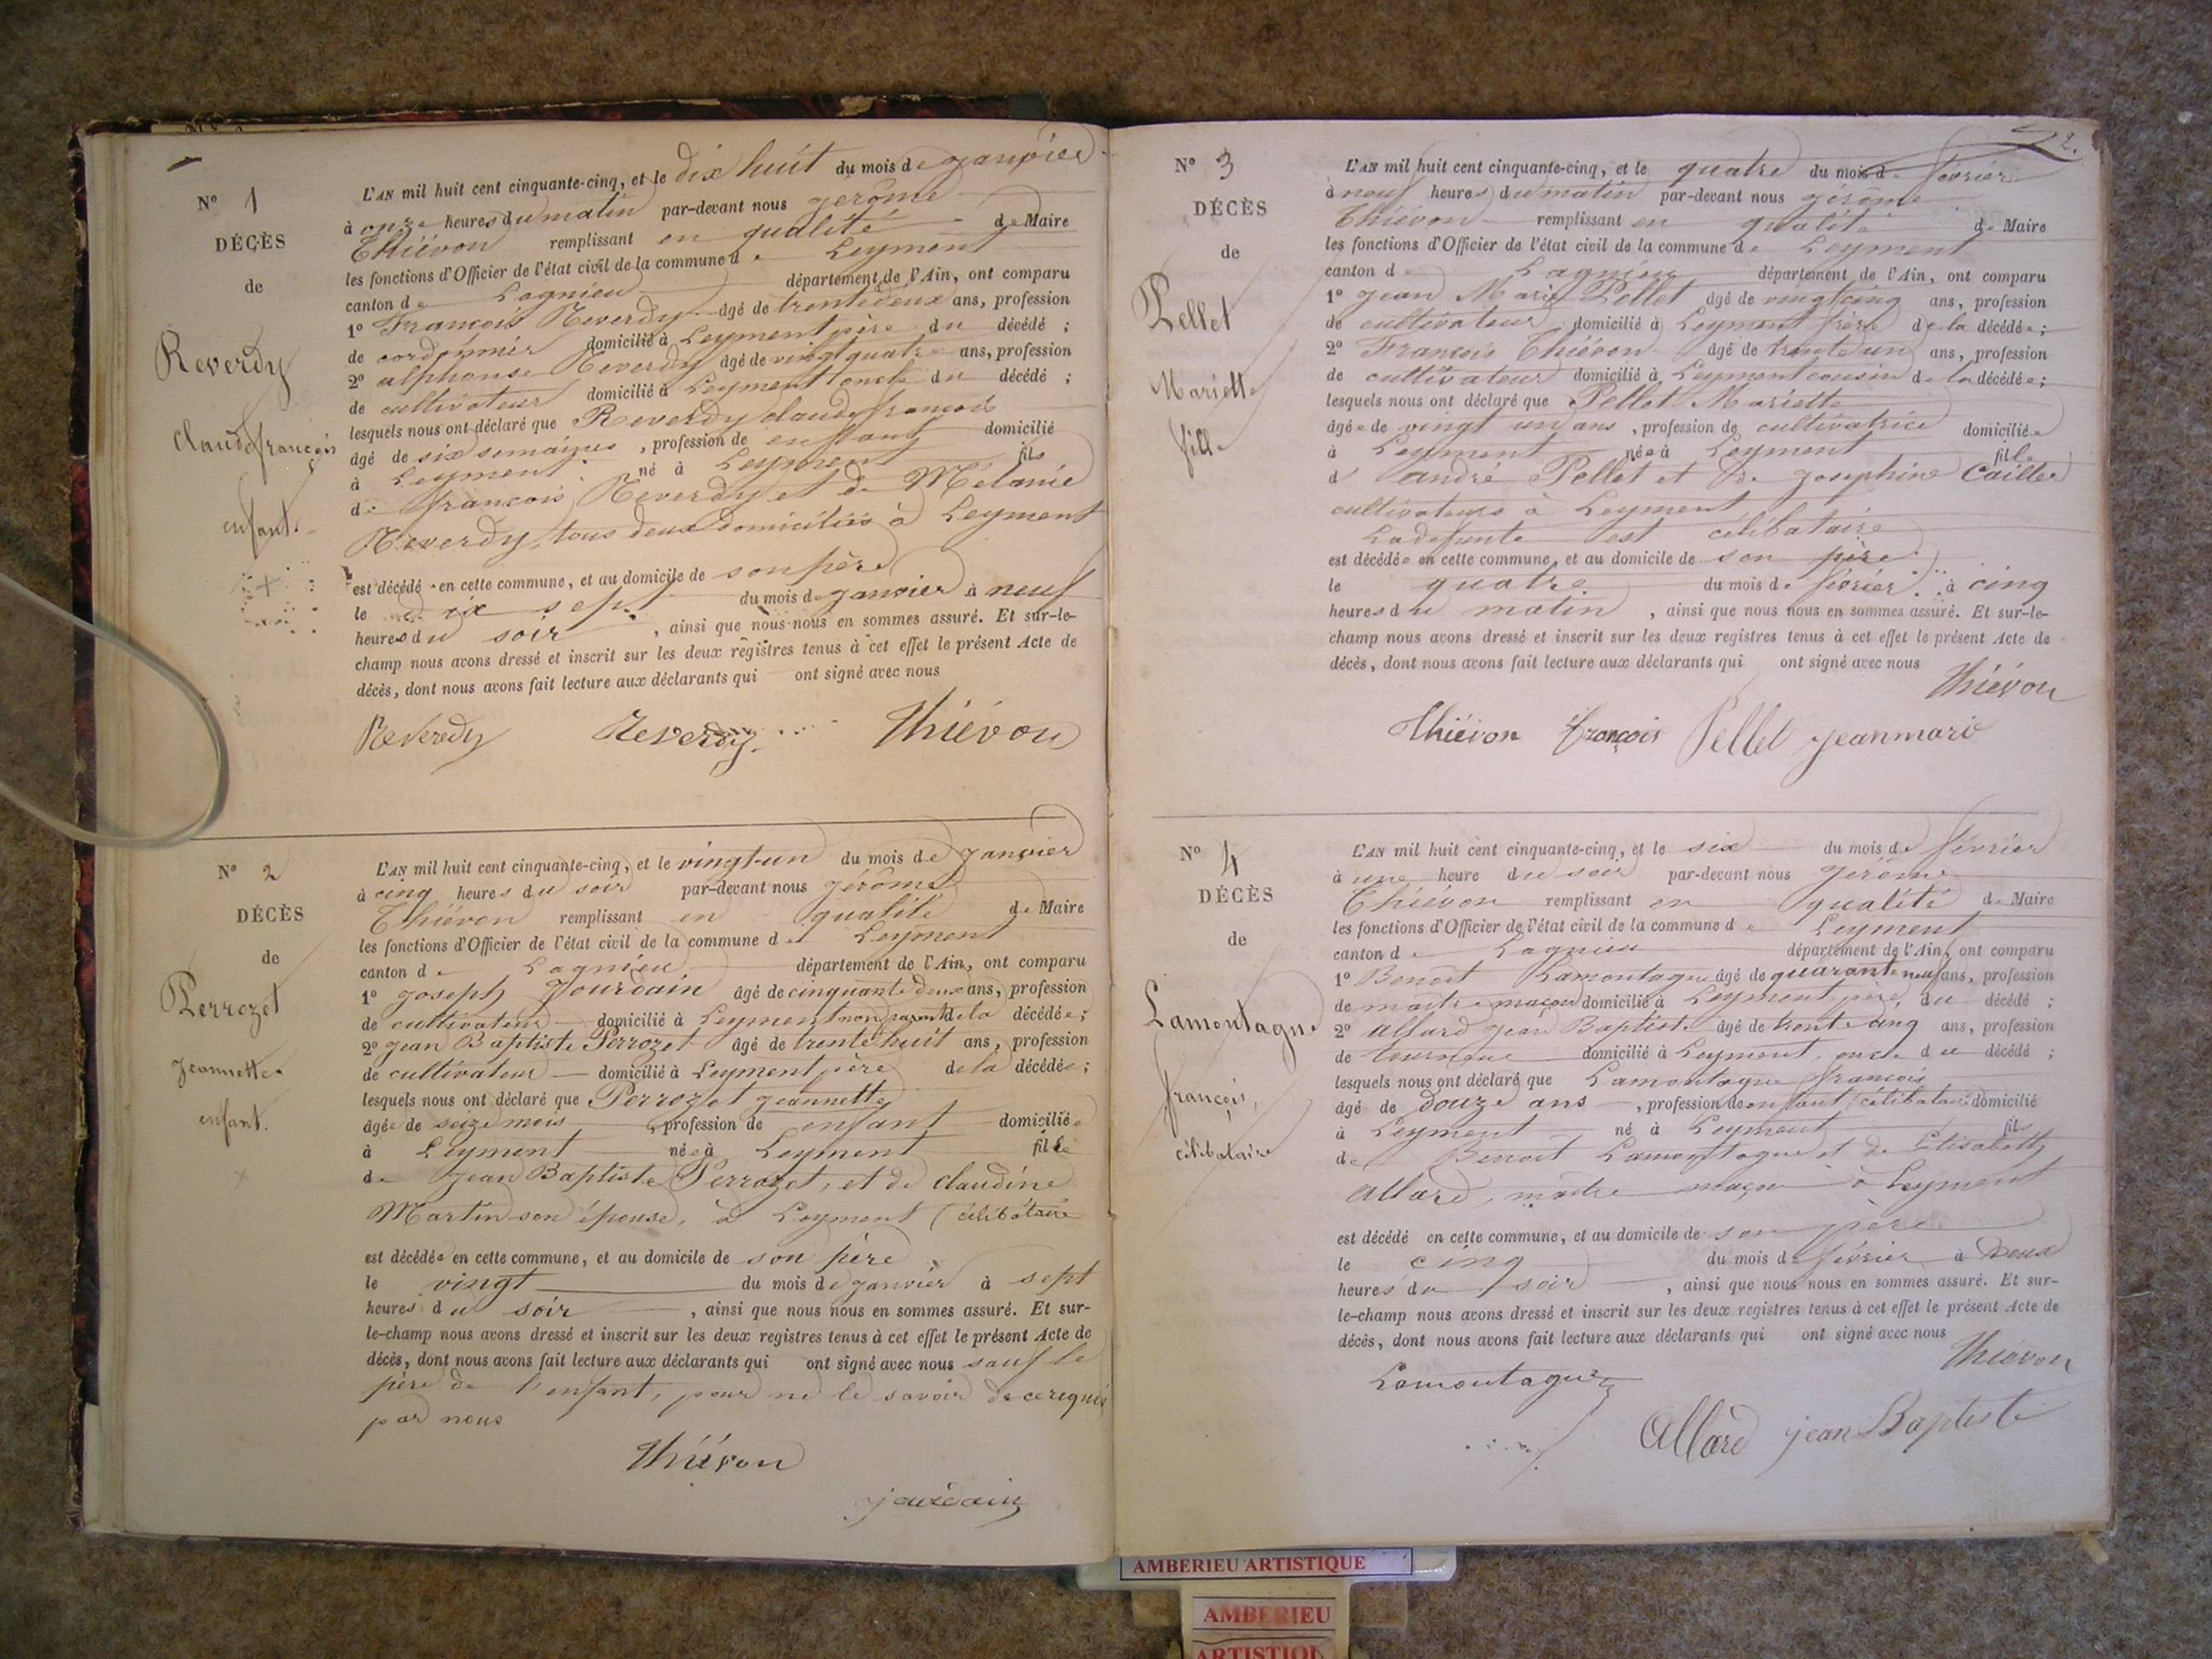 N° 1
DÉCÈS
de
Reverdy
Claude françois
enfant.
L'AN mil huit cent cinquante-cinq, et le dix huit du mois de janvier
à onze heures du matin par-devant nous jérôme
Thiévon remplissant en qualité de Maire
les fonctions d'Officier de l'état civil de la commune de Leyment
canton de Lagnieu département de l'Ain, ont comparu
1° François Reverdy âgé de trente deux ans, profession
de cordonnier domicilié à Leyment père du décédé ;
2° alphonse Reverdy âgé de vingt quatre ans, profession
de cultivateur domicilié à Leyment oncle du décédé ;
lesquels nous ont déclaré que Reverdy claude françois
âgé de six semaines, profession de enfant domicilié
à Leyment né à Leyment fils
de françois Reverdy et de Mélanie
Reverdy, tous deux domiciliés à Leyment
est décédé en cette commune, et au domicile de son père
le dix sept du mois de janvier à neuf
heures du soir, ainsi que nous nous en sommes assuré. Et sur-le-
champ nous avons dressé et inscrit sur les deux registres tenus à cet effet le présent Acte de
décès, dont nous avons fait lecture aux déclarants qui ont signé avec nous
Reverdy Reverdy Thiévon
N° 2
DÉCÈS
de
Perrozet
Jeannette
enfant.
L'AN mil huit cent cinquante-cinq, et le vingt-un du mois de janvier
à cinq heures du soir par-devant nous jérôme
Thiévon remplissant en qualité de Maire
les fonctions d'Officier de l'état civil de la commune de Leyment
canton de Lagnieu département de l'Ain, ont comparu
1° joseph Jourdain âgé de cinquante deux ans, profession
de cultivateur domicilié à Leyment non parent de la décédée ;
2° jean Baptiste Perrozet âgé de trente huit ans, profession
de cultivateur domicilié à Leyment père de la décédée ;
lesquels nous ont déclaré que Perrozet jeannette
âgée de seize mois, profession de enfant domiciliée
à Leyment née à Leyment fille
de jean Baptiste Perrozet, et de claudine
Martin son épouse, à Leyment (célibataire
est décédée en cette commune, et au domicile de son père
le vingt du mois de janvier à sept
heures du soir, ainsi que nous nous en sommes assuré. Et sur-
le-champ nous avons dressé et inscrit sur les deux registres tenus à cet effet le présent Acte de
décès, dont nous avons fait lecture aux déclarants qui ont signé avec nous sauf le
père de l'enfant, pour ne le savoir de ce requis
par nous
Thiévon
jourdain
2.
N° 3
DÉCÈS
de
Pellet
Mariette
fille
L'AN mil huit cent cinquante-cinq, et le quatre du mois de février
à neuf heures du matin par-devant nous jérôme
Thiévon remplissant en qualité de Maire
les fonctions d'Officier de l'état civil de la commune de Leyment
canton de Lagnieu département de l'Ain, ont comparu
1° jean Marie Pellet âgé de vingt cinq ans, profession
de cultivateur domicilié à Leyment frère de la décédée ;
2° François Thiévon âgé de trente un ans, profession
de cultivateur domicilié à Leyment cousin de la décédée ;
lesquels nous ont déclaré que Pellet Mariette
âgée de vingt un ans, profession de cultivatrice domiciliée
à Leyment née à Leyment fille
d' andré Pellet et de josephine Caillee
cultivateurs à Leyment
La defunte est célibataire
est décédée en cette commune, et au domicile de son père
le quatre du mois de février à cinq
heures du matin, ainsi que nous nous en sommes assuré. Et sur-le-
champ nous avons dressé et inscrit sur les deux registres tenus à cet effet le présent Acte de
décès, dont nous avons fait lecture aux déclarants qui ont signé avec nous
Thiévon
Thiévon françois Pellet jeanmarie
N° 4
DÉCÈS
de
Lamontagne
françois,
célibataire
L'AN mil huit cent cinquante-cinq, et le six du mois de février
à une heure du soir par-devant nous jérôme
Thiévon remplissant en qualité de Maire
les fonctions d'Officier de l'état civil de la commune de Leyment
canton de Lagnieu département de l'Ain, ont comparu
1° Benoit Lamontagne âgé de quarante neuf ans, profession
de maitre maçon domicilié à Leyment père du décédé ;
2° Allard jean Baptiste âgé de trente cinq ans, profession
de tourneur domicilié à Leyment, oncle du décédé ;
lesquels nous ont déclaré que Lamontagne françois
âgé de douze ans, profession de enfant (célibataire domicilié
à Leyment né à Leyment fils
de Benoit Lamontagne et de Elisabeth
Allard, maitre maçon à Leyment
est décédé en cette commune, et au domicile de son père
le cinq du mois de février à deux
heures du soir, ainsi que nous nous en sommes assuré. Et sur-
le-champ nous avons dressé et inscrit sur les deux registres tenus à cet effet le présent Acte de
décès, dont nous avons fait lecture aux déclarants qui ont signé avec nous
Thiévon
Lamontagne
Allard jean Baptiste
AMBERIEU ARTISTIQUE
AMBERIEU